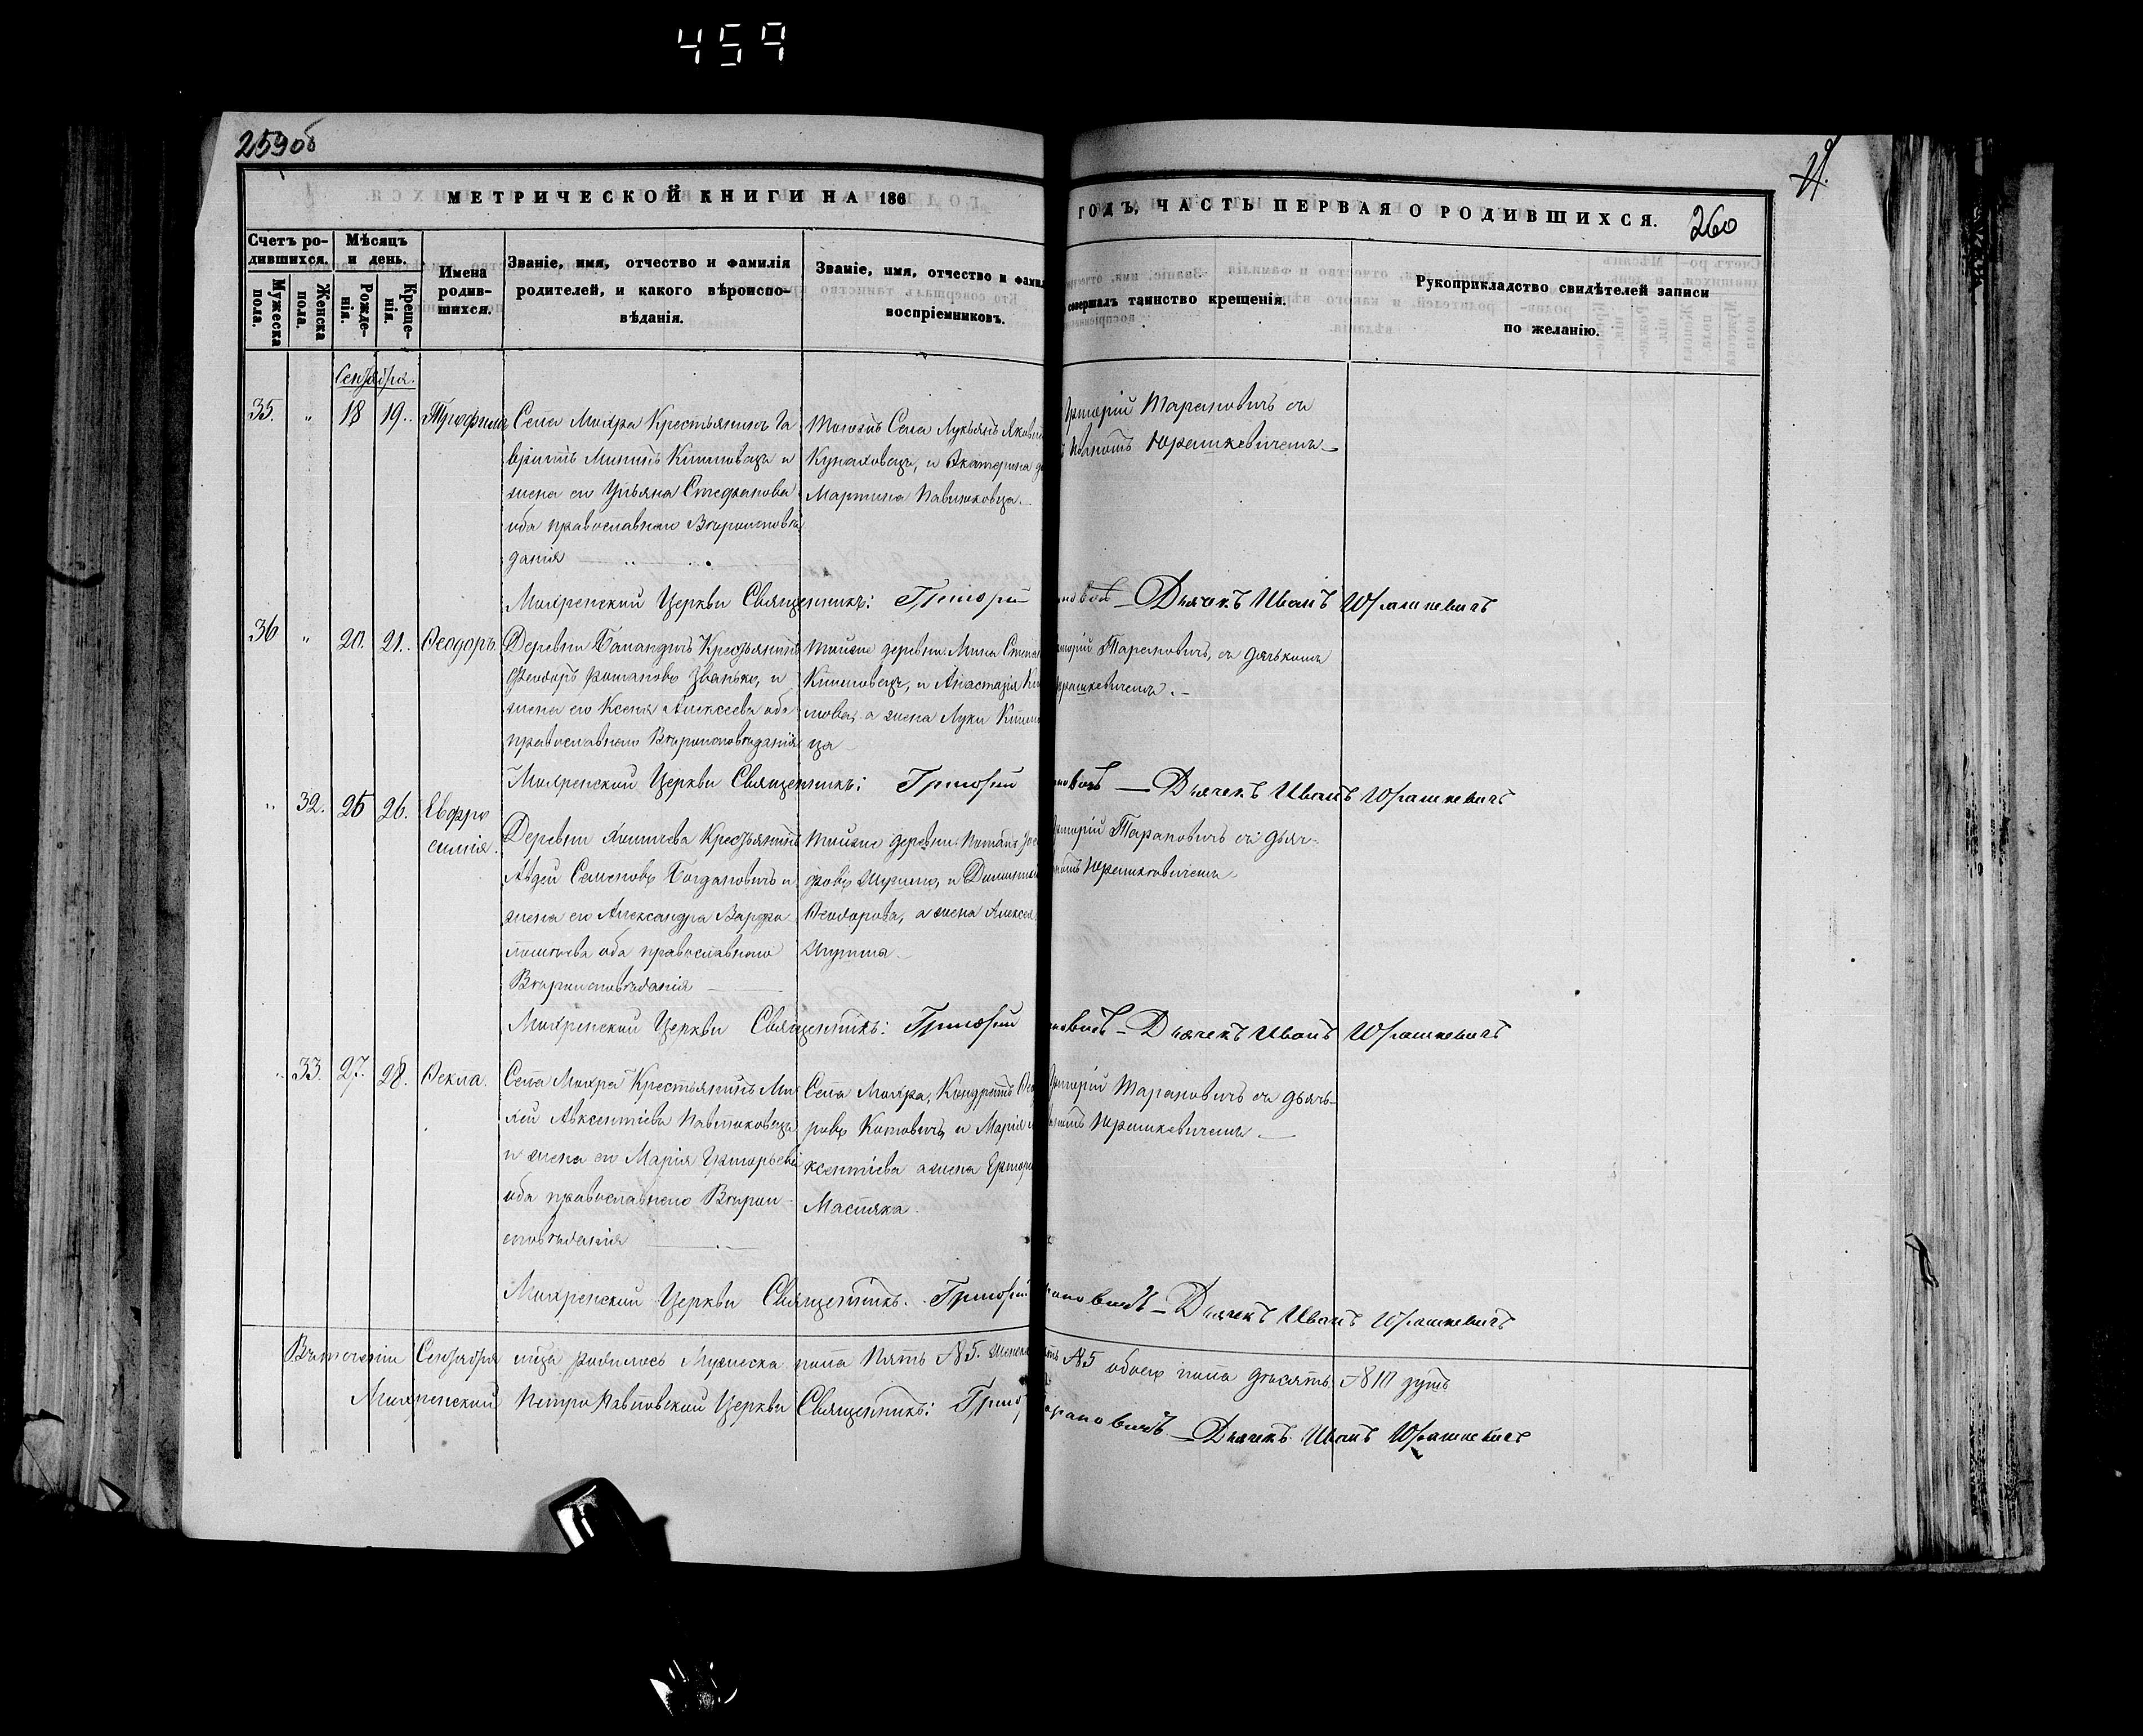 459
259об
МЕТРИЧЕСКОЙ КНИГИ НА 186
ГОДЪ, ЧАСТЬ ПЕРВАЯ О РОДИВШИХСЯ.
260
Счетъ ро-
дившихся.
Мужеска
пола.
Женска
пола.
Мѣсяцъ
и день.
Рожде-
нія.
Креще-
нія.
Имена
родив-
шихся.
Званіе, имя, отчество и фамилія
родителей, и какого вѣроиспо-
вѣданія.
Званіе, имя, отчество и фами
воспріемниковъ.
совершалъ таинство крещенія.
Рукоприкладство свидѣтелей записи
по желанію.
Сентября.
35. " 18 19. Трофимъ
Села Мохра Крестьянинъ Га
врiилъ Мининъ Климовецъ и
жена его Ульяна Стефанова
оба православнаго Вѣроисповѣ
данія
Тогожъ Села Лукьянъ Яковл
Куналовецъ, и Екатерина
Мартина Павлюковца.
Григорій Тарановичъ съ
Иваномъ Юрашкевичемъ
Мохренской Церкви Священникъ: Григорій
новичъ — Дьячекъ Иванъ Юрашкевичъ
36 " 20. 21. Ѳеодоръ.
Деревни Крестьянинъ
Ѳеодоръ Романовъ и
жена его Ксенія Алексеева оба
православнаго Вѣроисповѣданія
тойже деревни Мина
Климовецъ, и Анастасія
а жена Луки Климо
ца
Григорій Тарановичъ, съ дьячкомъ
Юрашкевичемъ.
Мохренской Церкви Священникъ: Григорій
новичъ — Дьячекъ Иванъ Юрашкевичъ
" 32. 25 26. Евфро
синія.
Деревни Крестьянинъ
Авдей Семеновъ Богдановичъ и
жена его Александра Варфо
ломеева оба православнаго
Вѣроисповѣданія
тойже деревни
и
Ѳеодорова, а жена Алексея
Григорій Тарановичъ съ дьяч-
комъ Юрашкевичемъ
Мохренской Церкви Священникъ: Григорій
новичъ — Дьячекъ Иванъ Юрашкевичъ
" 33. 27. 28. Ѳекла.
Села Мохра Крестьянинъ Ми
хей Авксентіевъ Павлюковецъ
и жена его Марія Григорьева
оба православнаго Вѣрои
сповѣданія
Села Мохра, Кондратъ Ѳеод
ровъ Котовичъ, и Марія
ксентіева а жена Григорія
Масляка.
Григорій Тарановичъ съ дьяч-
комъ Юрашкевичемъ
Мохренской Церкви Священникъ. Григорій
рановичъ — Дьячекъ Иванъ Юрашкевичъ
Въ теченіи Сентября м-ца родилось Мужеска пола пять №5. Женска
№5 обоего пола десять №10 душъ
Мохренской Петро Павловской Церкви Священникъ: Григор
арановичъ. — Дьячекъ Иванъ Юрашкевичъ